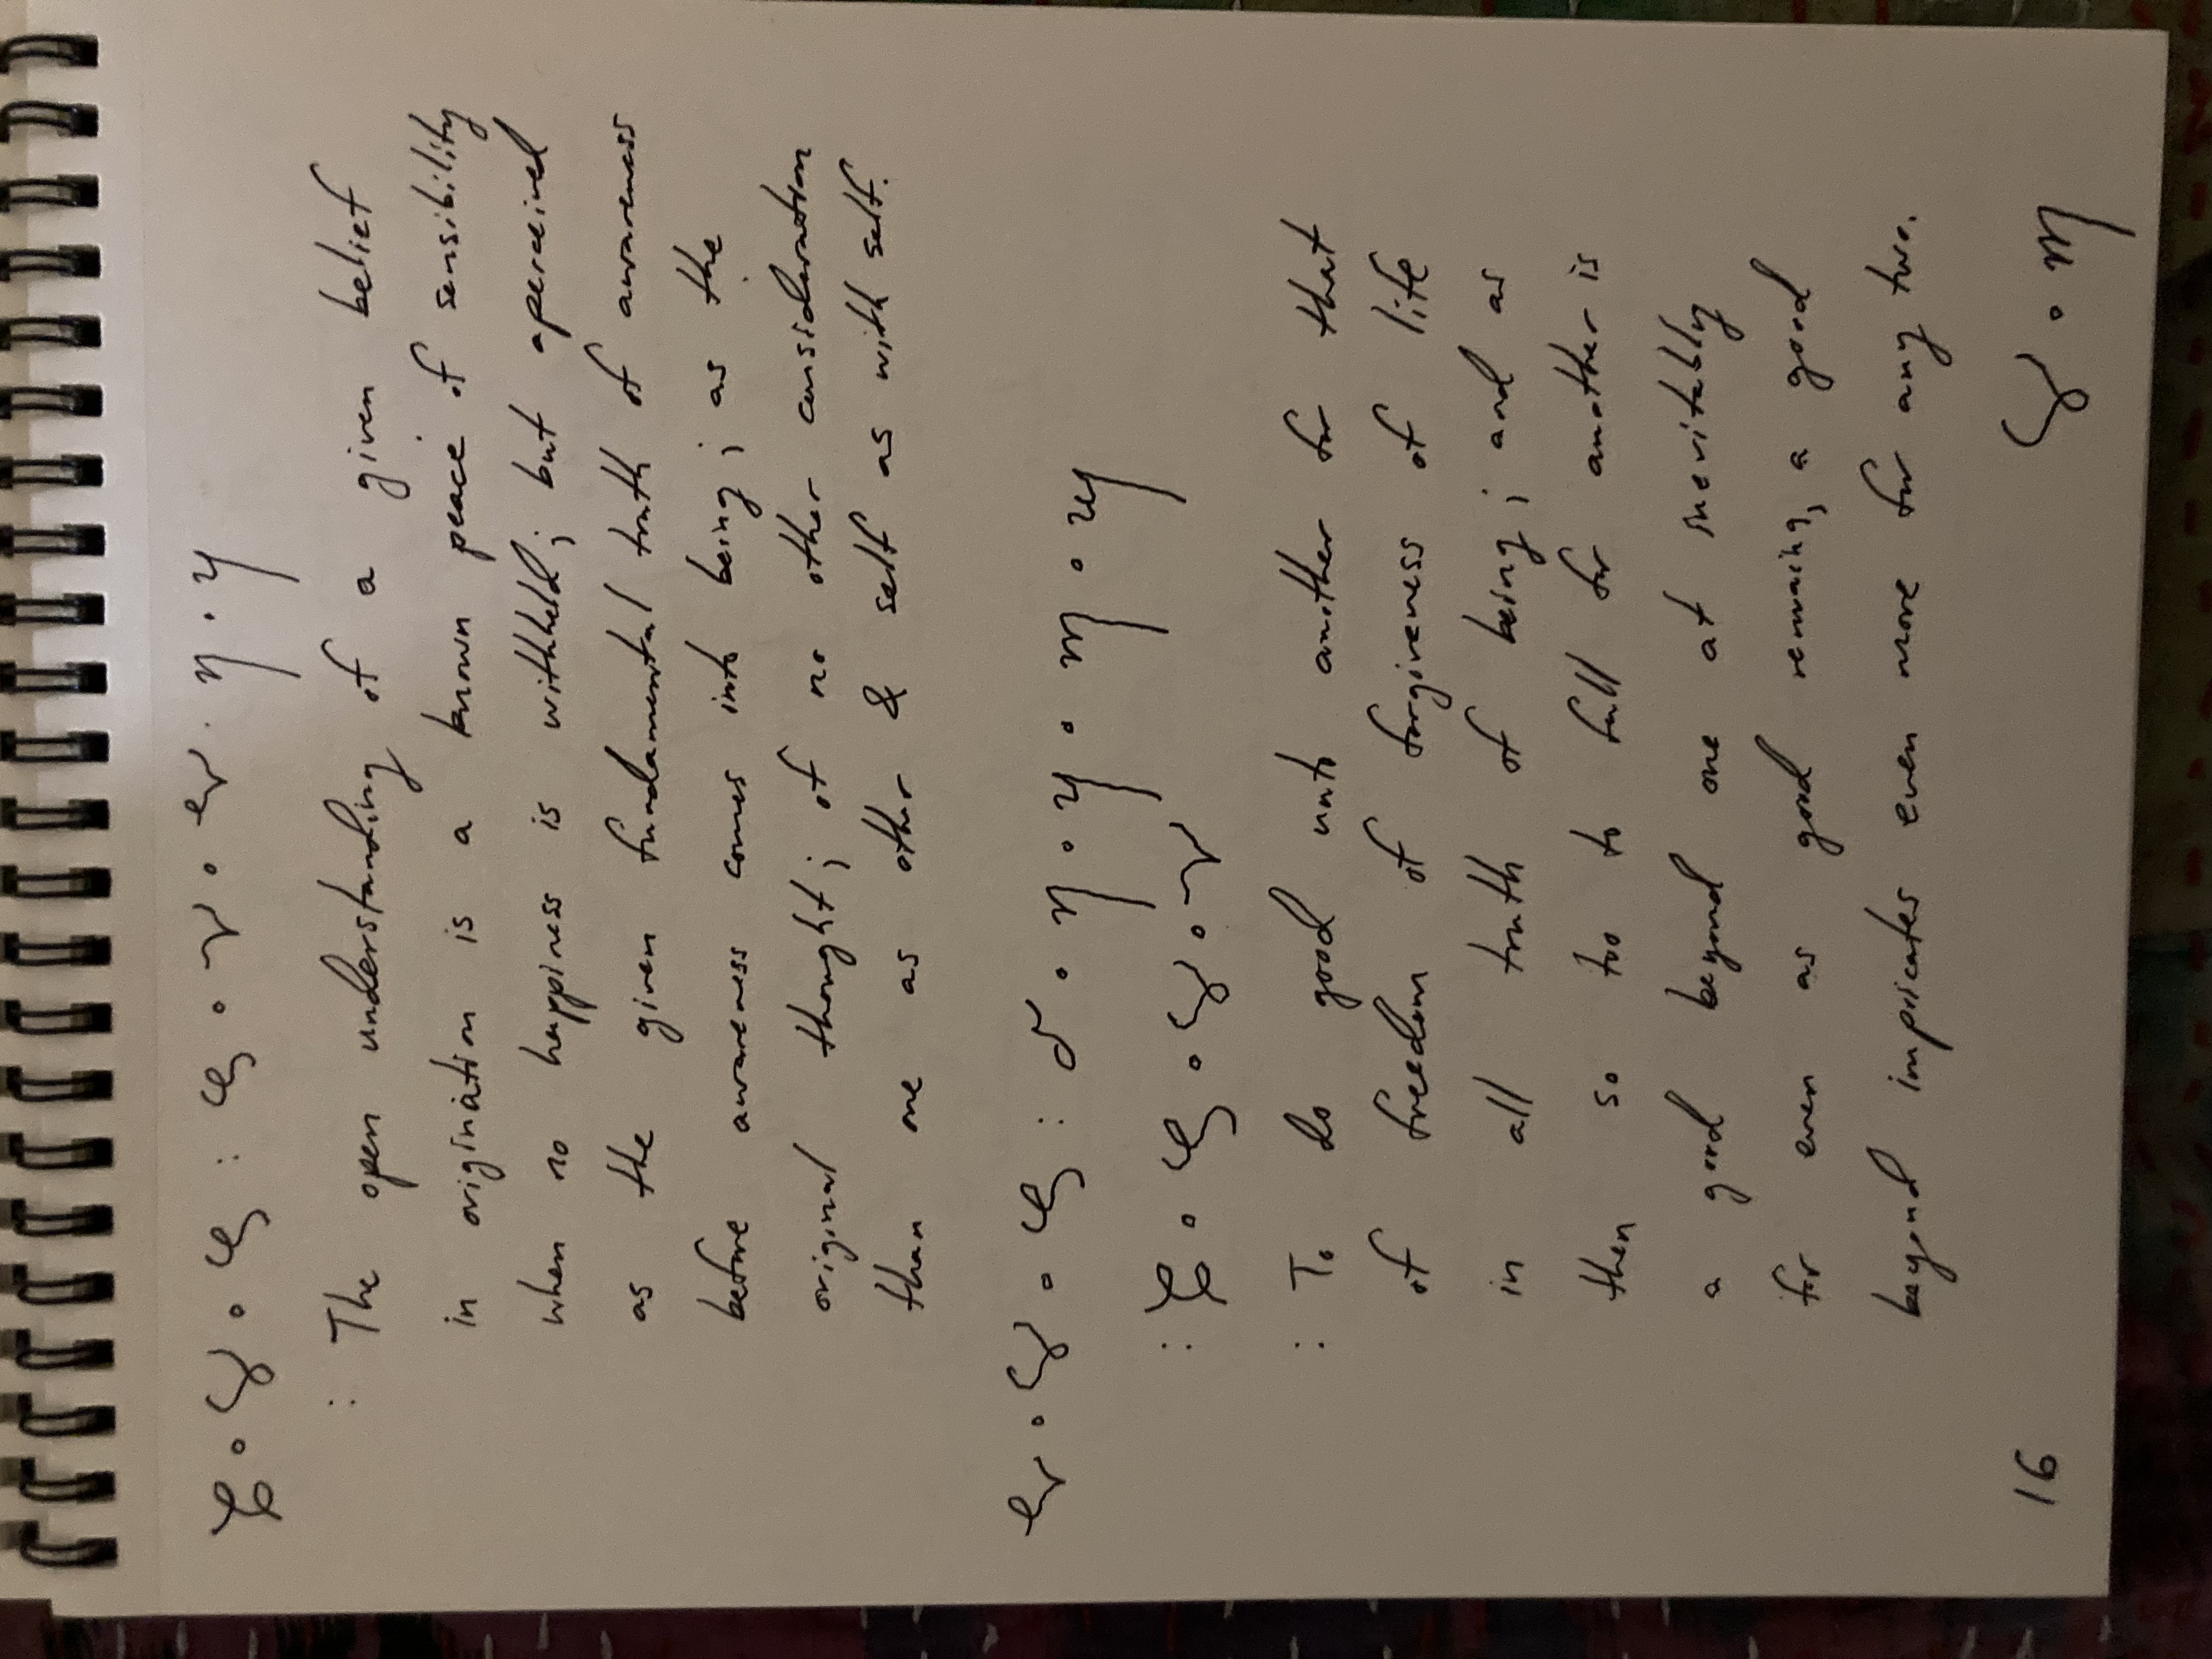 : The open understanding of a given belief
in origination is a known peace of sensibility
when no happiness is withheld; but aperceived
as the given fundamental truth of awareness
before awareness comes into being; as the
original thought; of no other consideration
than one as other & self as with self.
: To do good unto another for that
of freedom of forgiveness of life
in all truth of being; and as
then so too to fall for another is
a good beyond one at inevitably
for even as good remains, a good
beyond implicates even more for any two.
16